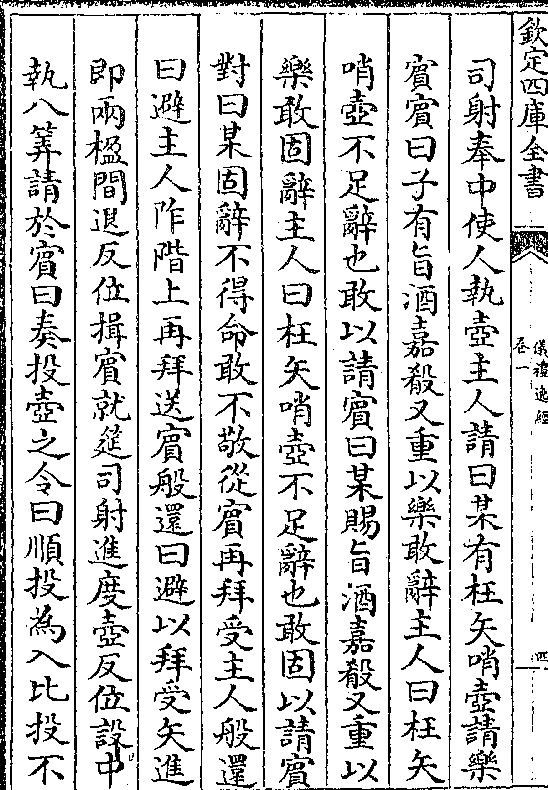 欽定四庫全書
儀禮逸經
卷一
四
司射奉中使人執壺主人請曰某有枉矢哨壺請樂
賓賓曰子有旨酒嘉殽又重以樂敢辭主人曰枉矢
哨壺不足辭也敢以請賓曰某賜旨酒嘉殽又重以
樂敢固辭主人曰枉矢哨壺不足辭也敢固以請賓
對曰某固辭不得命敢不敬從賓再拜受主人般還
曰避主人阼階上再拜送賓般還曰避以拜受矢進
即兩楹間退反位揖賓就筵司射進度壺反位設中
執八筭請於賓曰奏投壺之令曰順投為入比投不